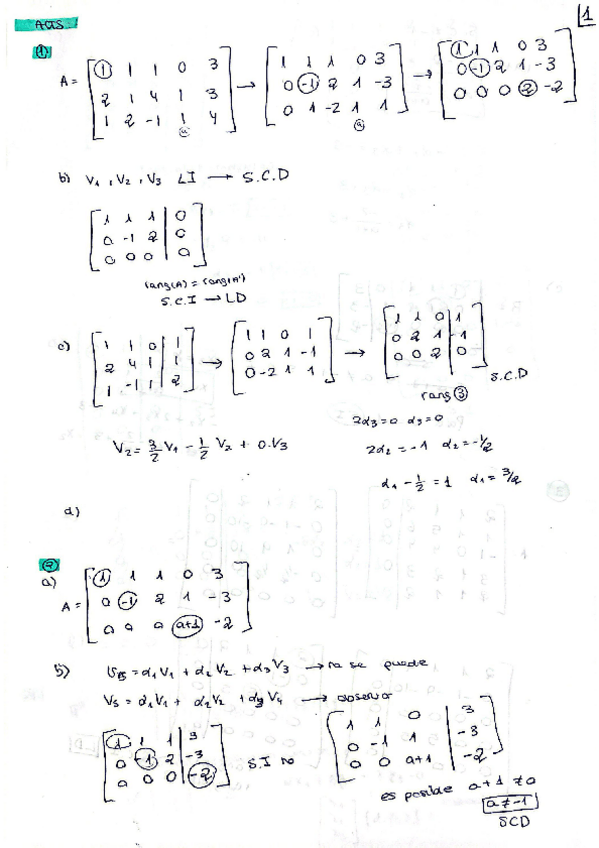 1
ACTS
①
A = [ 1 1 1 0 3 ] → [ 1 1 1 0 3 ] → [ 1 1 1 0 3 ]
[ 2 1 4 1 3 ] [ 0 -1 2 1 -3 ] [ 0 -1 2 1 -3 ]
[ 1 2 -1 1 4 ] [ 0 1 -2 1 1 ] [ 0 0 0 2 -2 ]
b) V1, V2, V3 LI → S.C.D
[ 1 1 1 | 0 ]
[ 0 -1 2 | 0 ]
[ 0 0 0 | 0 ]
rang(A) = rang(A')
S.C.I → LD
c) [ 1 1 0 | 1 ] → [ 1 1 0 1 ] → [ 1 1 0 | 1 ]
[ 2 4 1 | 1 ] [ 0 2 1 -1 ] [ 0 2 1 | -1 ]
[ 1 -1 1 | 2 ] [ 0 -2 1 1 ] [ 0 0 2 | 0 ]
S.C.D
rang ③
2α3=0 α3=0
V2 = 3/2 V1 - 1/2 V2 + 0·V3
2α2 = -1 α2 = -1/2
α1 - 1/2 = 1 α1 = 3/2
d)
②
a) A = [ 1 1 1 0 3 ]
[ 0 -1 2 1 -3 ]
[ 0 0 0 a+1 -2 ]
b) V5 = α1V1 + α2V2 + α3V3 → no se puede
V5 = α1V1 + α2V2 + α3V4 →
[ 1 1 1 | 3 ] [ 1 1 0 | 3 ]
[ 0 -1 2 | -3 ] S.I no [ 0 -1 1 | -3 ]
[ 0 0 0 | -2 ] [ 0 0 a+1 | -2 ]
es posible a+1 ≠ 0
a ≠ -1
SCD